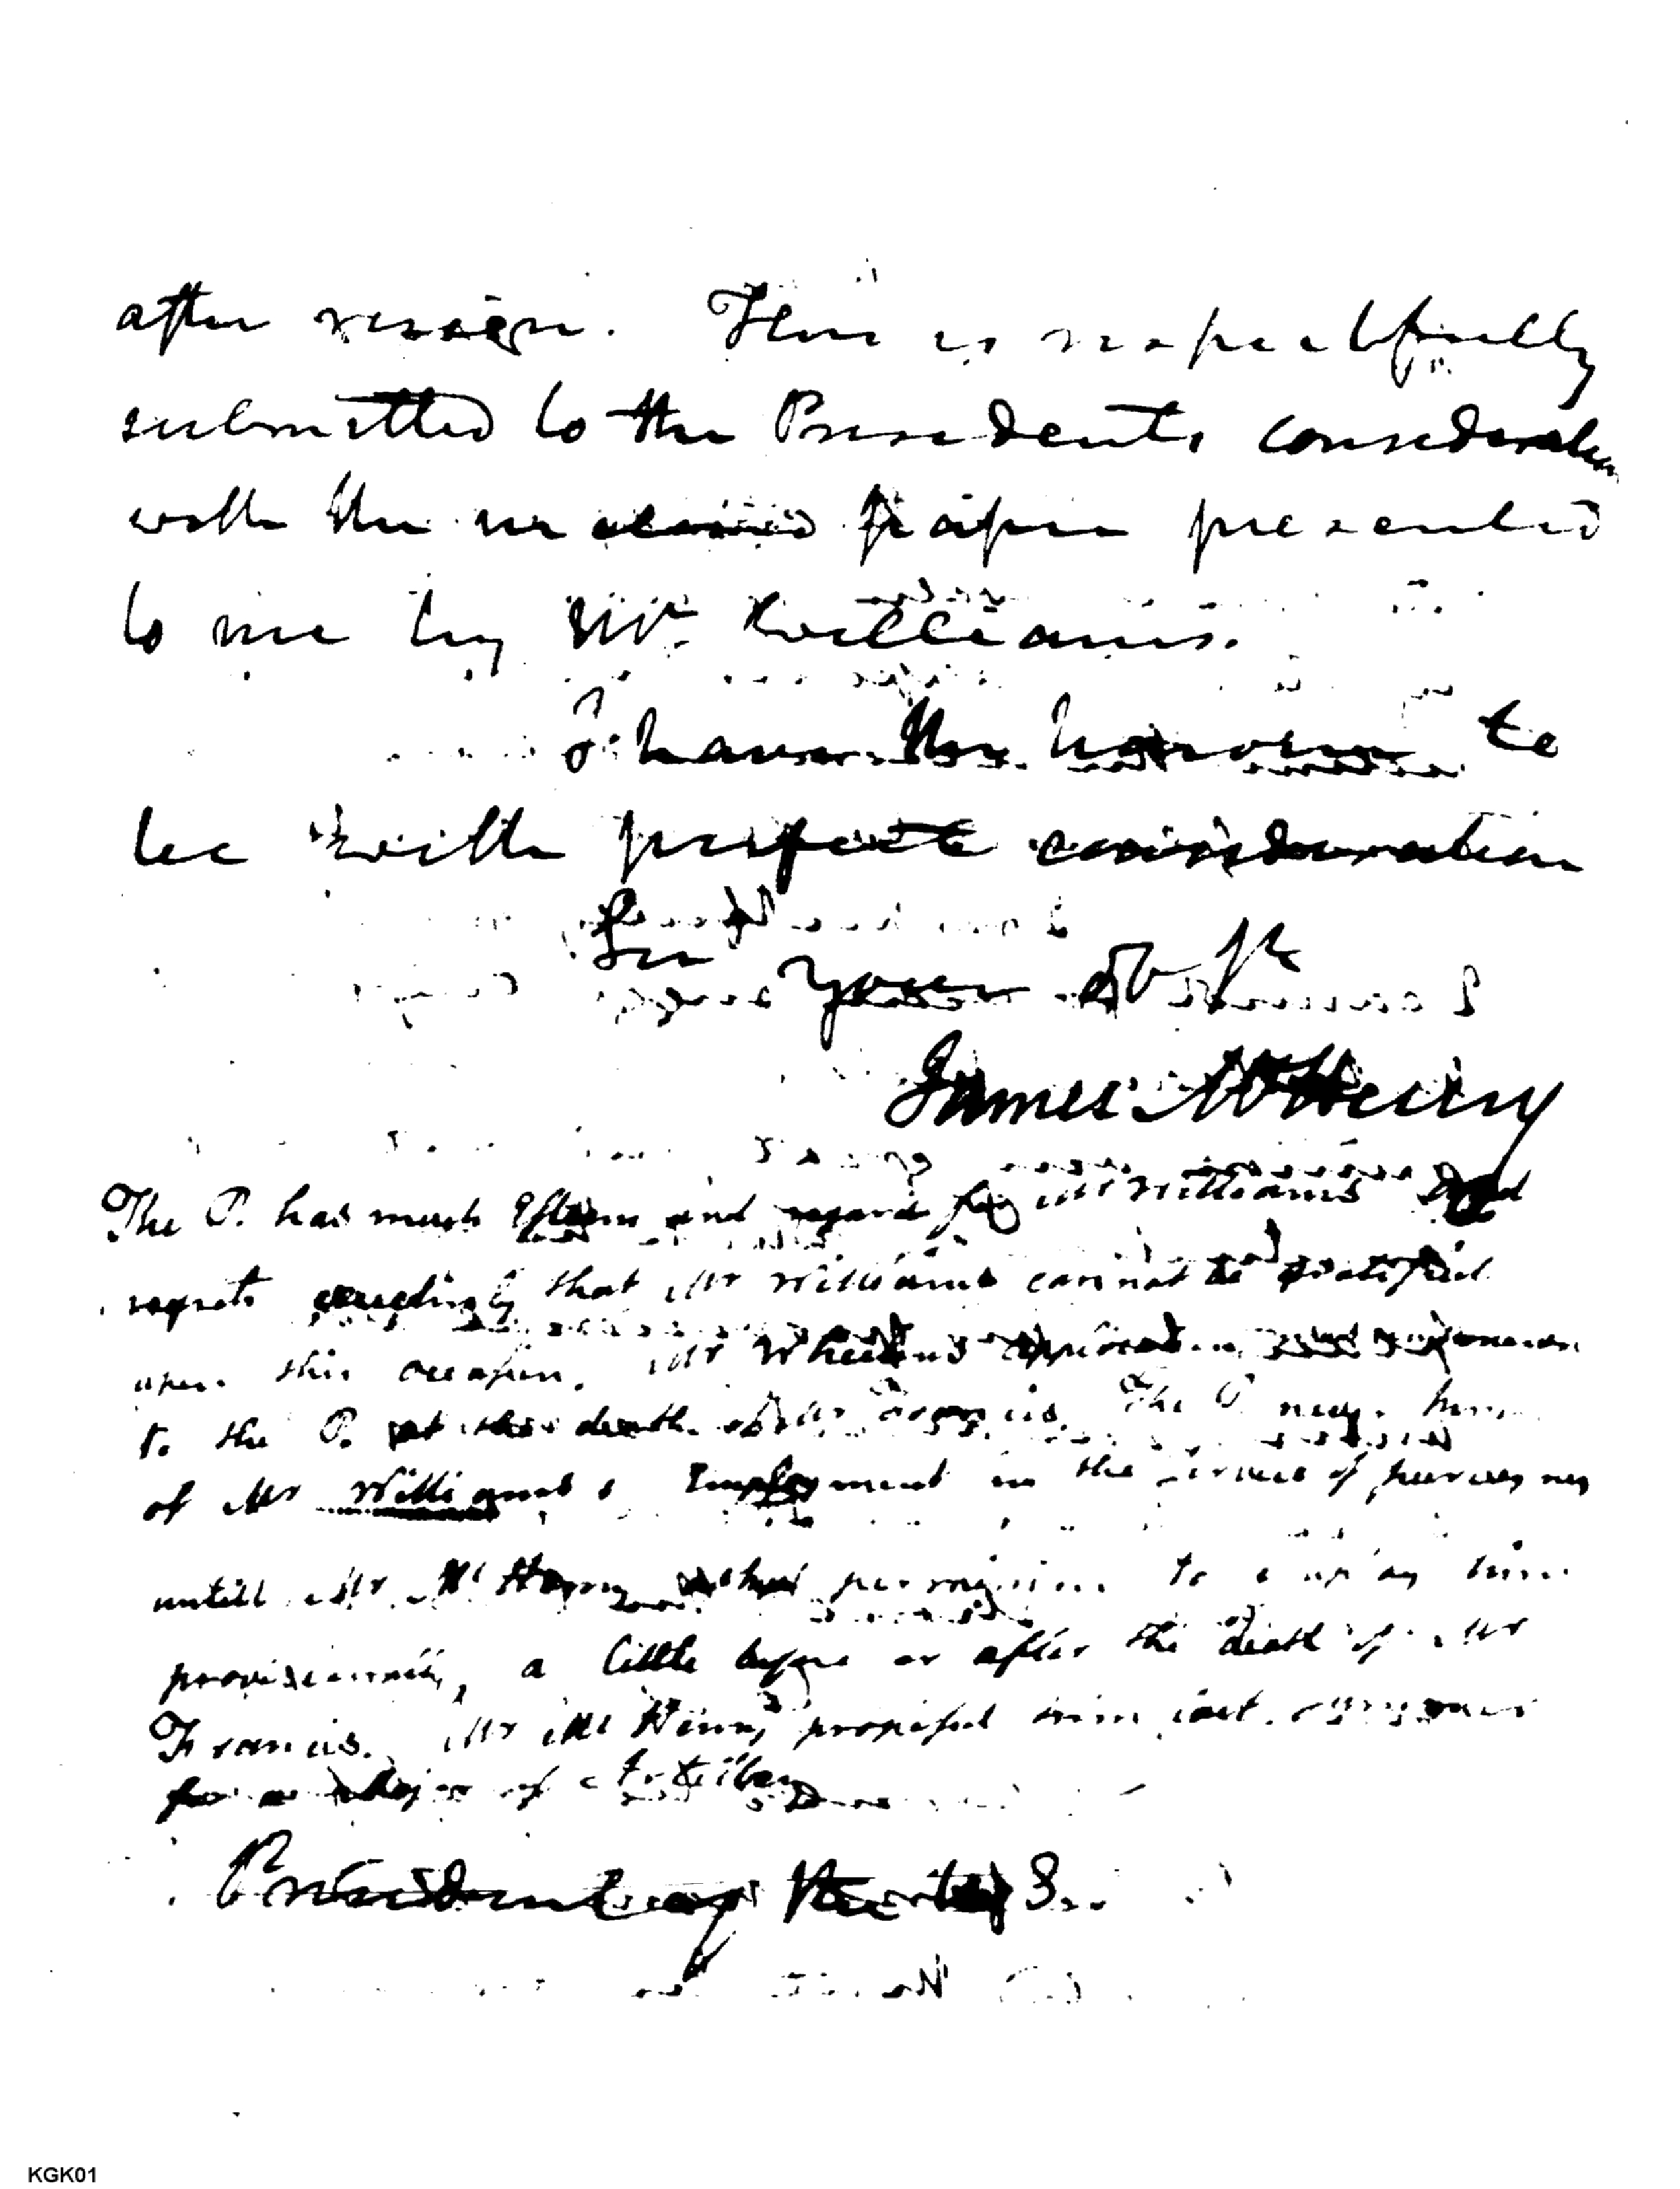 after resign. This is respectfully
submitted to the Presidents consideration
with the inclosed paper presented
to me by Mr. Williams.
I have the honour to
be with perfect consideration
Sir your ob St
James McHenry
The P. has much Esteem and regard for Mr Williams and
regrets exceedingly that Mr Williams cannot be gratified
upon this occasion. Mr Whelens
to the P. at the death of Mr Francis. The P. never
of Mr Williams's Employment in the service of
untill Mr McHenry asked permission to employ him
provisionally, a little before or after the death of Mr
Francis. Mr McHenry proposed him
for a Major of Artillery
President of the U S.
KGK01